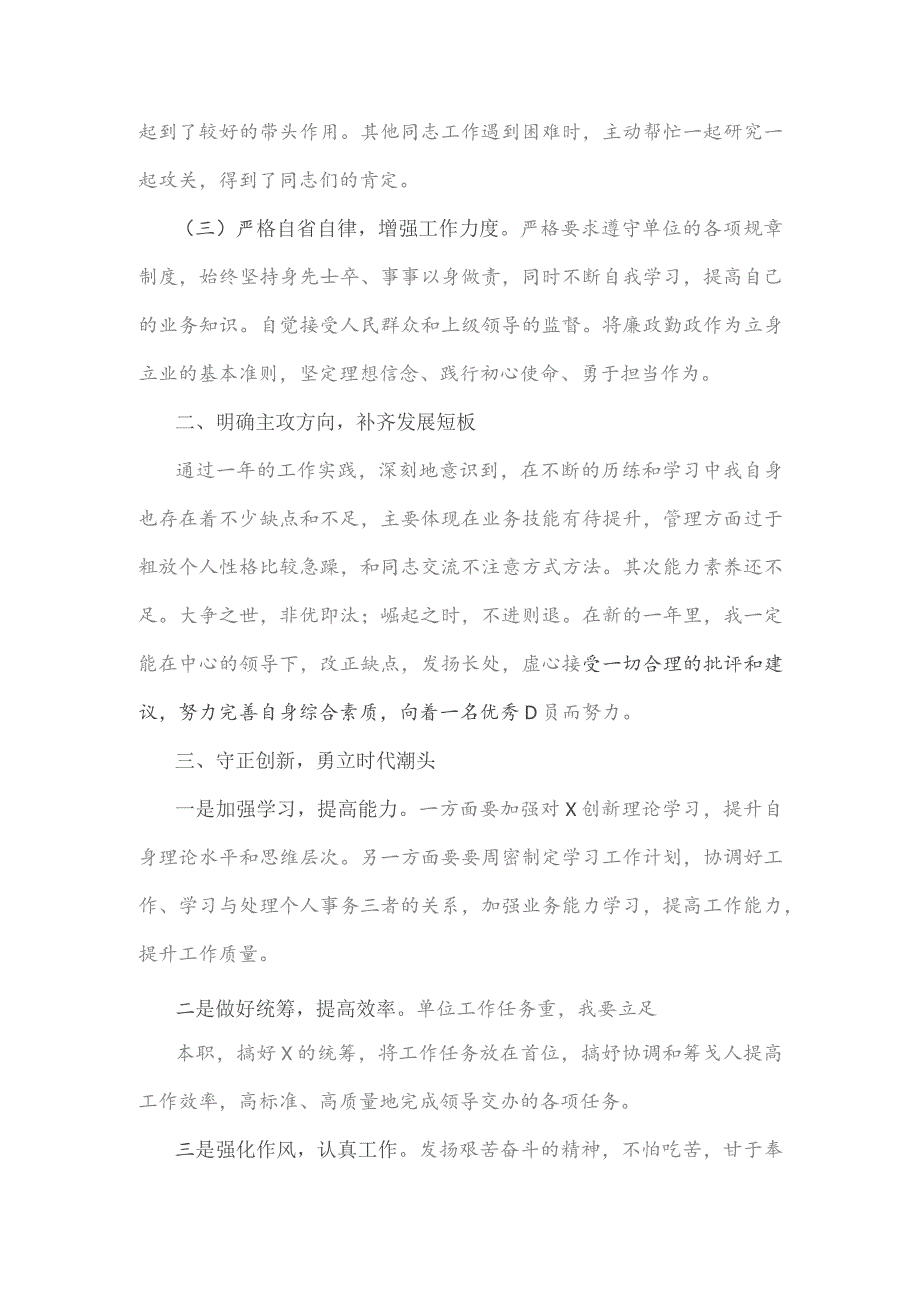 起到了较好的带头作用。其他同志工作遇到困难时，主动帮忙一起研究一
起攻关，得到了同志们的肯定。
（三）严格自省自律，增强工作力度。严格要求遵守单位的各项规章
制度，始终坚持身先士卒、事事以身做责，同时不断自我学习，提高自己
的业务知识。自觉接受人民群众和上级领导的监督。将廉政勤政作为立身
立业的基本准则，坚定理想信念、践行初心使命、勇于担当作为。
二、明确主攻方向，补齐发展短板
通过一年的工作实践，深刻地意识到，在不断的历练和学习中我自身
也存在着不少缺点和不足，主要体现在业务技能有待提升，管理方面过于
粗放个人性格比较急躁，和同志交流不注意方式方法。其次能力素养还不
足。大争之世，非优即汰；崛起之时，不进则退。在新的一年里，我一定
能在中心的领导下，改正缺点，发扬长处，虚心接受一切合理的批评和建
议，努力完善自身综合素质，向着一名优秀 D 员而努力。
三、守正创新，勇立时代潮头
一是加强学习，提高能力。一方面要加强对 X 创新理论学习，提升自
身理论水平和思维层次。另一方面要要周密制定学习工作计划，协调好工
作、学习与处理个人事务三者的关系，加强业务能力学习，提高工作能力，
提升工作质量。
二是做好统筹，提高效率。单位工作任务重，我要立足
本职，搞好 X 的统筹，将工作任务放在首位，搞妤协调和筹戈人提高
工作效率，高标准、高质量地完成领导交办的各项任务。
三是强化作风，认真工作。发扬艰苦奋斗的精神，不怕吃苦，甘于奉